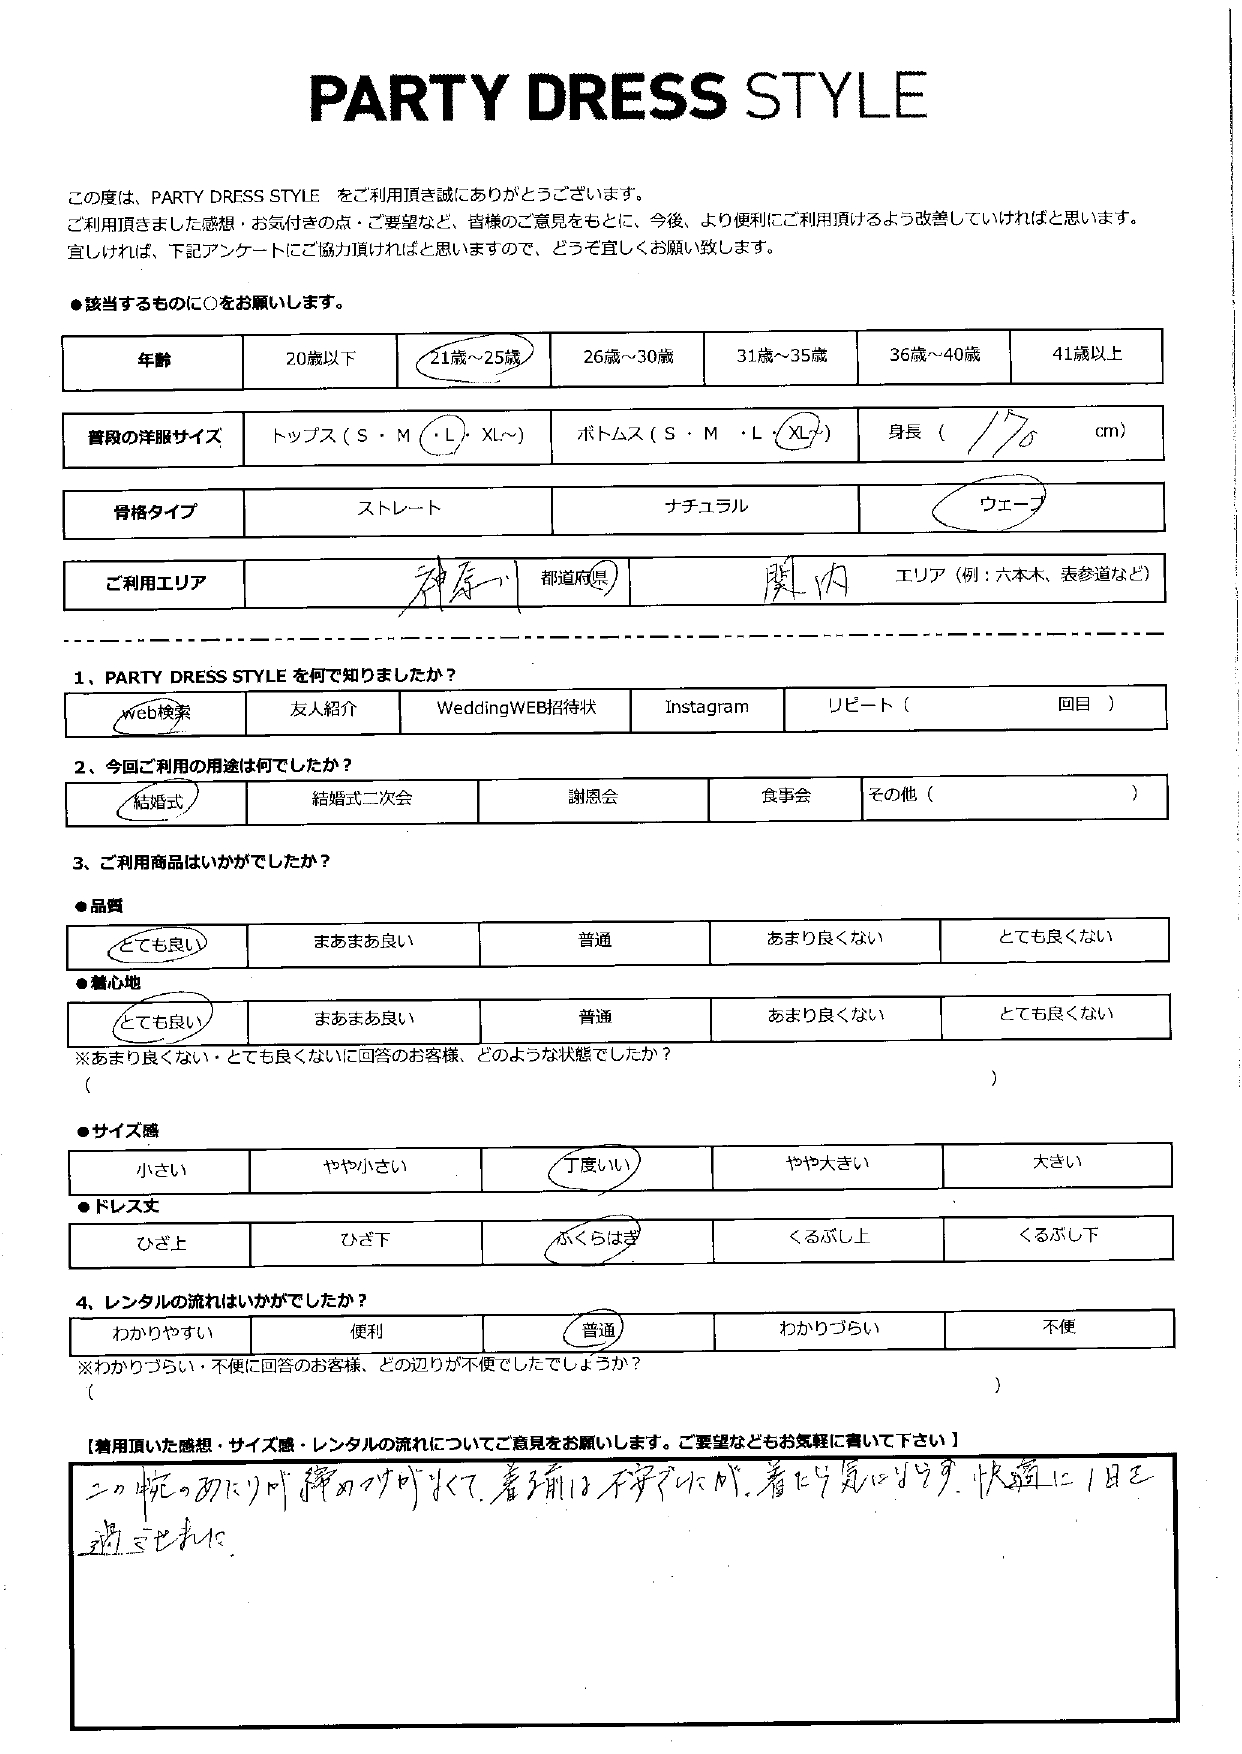 PARTY DRESS STYLE
この度は、PARTY DRESS STYLE をご利用頂き誠にありがとうございます。
ご利用頂きました感想・お気付きの点・ご要望など、皆様のご意見をもとに、今後、より便利にご利用頂けるよう改善していければと思います。
宜しければ、下記アンケートにご協力頂ければと思いますので、どうぞ宜しくお願い致します。
●該当するものに〇をお願いします。
年齢 20歳以下 21歳～25歳 26歳～30歳 31歳～35歳 36歳～40歳 41歳以上
普段の洋服サイズ トップス ( S ・ M ・L・ XL～) ボトムス ( S ・ M ・L・XL～) 身長 ( 170 cm)
骨格タイプ ストレート ナチュラル ウェーブ
ご利用エリア 神奈川 都道府県 関内 エリア（例：六本木、表参道など）
1、PARTY DRESS STYLE を何で知りましたか？
web検索 友人紹介 WeddingWEB招待状 Instagram リピート（ 回目 ）
2、今回ご利用の用途は何でしたか？
結婚式 結婚式二次会 謝恩会 食事会 その他（ ）
3、ご利用商品はいかがでしたか？
●品質
とても良い まあまあ良い 普通 あまり良くない とても良くない
●着心地
とても良い まあまあ良い 普通 あまり良くない とても良くない
※あまり良くない・とても良くないに回答のお客様、どのような状態でしたか？
（ ）
●サイズ感
小さい やや小さい 丁度いい やや大きい 大きい
●ドレス丈
ひざ上 ひざ下 ふくらはぎ くるぶし上 くるぶし下
4、レンタルの流れはいかがでしたか？
わかりやすい 便利 普通 わかりづらい 不便
※わかりづらい・不便に回答のお客様、どの辺りが不便でしたでしょうか？
（ ）
【着用頂いた感想・サイズ感・レンタルの流れについてご意見をお願いします。ご要望などもお気軽に書いて下さい】
二の腕のあたりが締めつけがなくて、着る前は不安でしたが、着たら気にならず、快適に1日を
過ごせました。